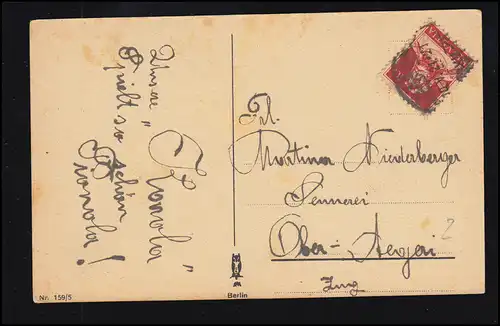 Unsere „Homola"
spielt so
schön
Promola!
Frl.
Martina Niederberger
Sennerei
Ober-Aegeri
Zug
2
Nr. 159/5
Berlin